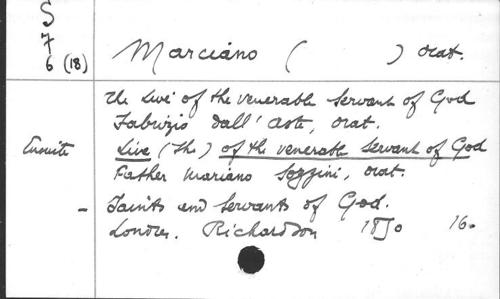 S
7
6 (18)
Marciano ( ) orat.
The Live of the venerable Servant of God
Fabrizio dall' Aste, orat.
Ensuite Live (the) of the venerable Servant of God
Father Mariano Sozzini, orat.
- Saints and Servants of God.
Londres. Richardson 1850 16°